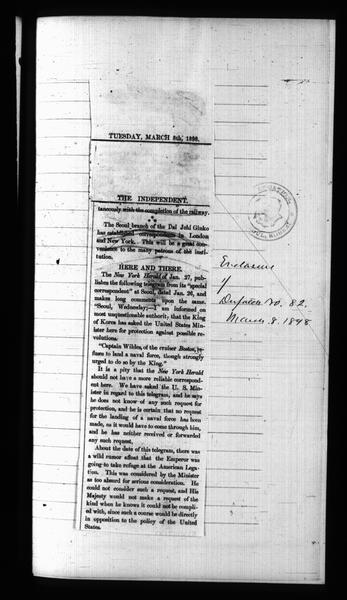 TUESDAY, MARCH 8th, 1898.
THE INDEPENDENT.
taneously with the completion of the railway.
The Seoul branch of the Dai Ichi Ginko
has established correspondents in London
and New York. This will be a great con-
venience to the many patrons of the insti-
tution.
HERE AND THERE.
The New York Herald of Jan. 27, pub-
lishes the following telegram from its "special
correspondent" at Seoul, dated Jan. 26, and
makes long comments upon the same.
"Seoul, Wednesday;—I am informed on
most unquestionable authority; that the King
of Korea has asked the United States Min-
ister here for protection against possible re-
volutions.
"Captain Wildes, of the cruiser Boston, re-
fuses to land a naval force, though strongly
urged to do so by the King."
It is a pity that the New York Herald
should not have a more reliable correspond-
ent here. We have asked the U. S. Min-
ister in regard to this telegram, and he says
he does not know of any such request for
protection, and he is certain that no request
for the landing of a naval force has been
made, as it would have to come through him,
and he has neither received or forwarded
any such request.
About the date of this telegram, there was
a wild rumor afloat that the Emperor was
going to take refuge at the American Lega-
tion. This was considered by the Minister
as too absurd for serious consideration. He
could not consider such a request, and His
Majesty would not make a request of the
kind when he knows it could not be compli-
ed with, since such a course would be directly
in opposition to the policy of the United
States.
Enclosure
of
Dispatch No. 82.
March 8. 1898